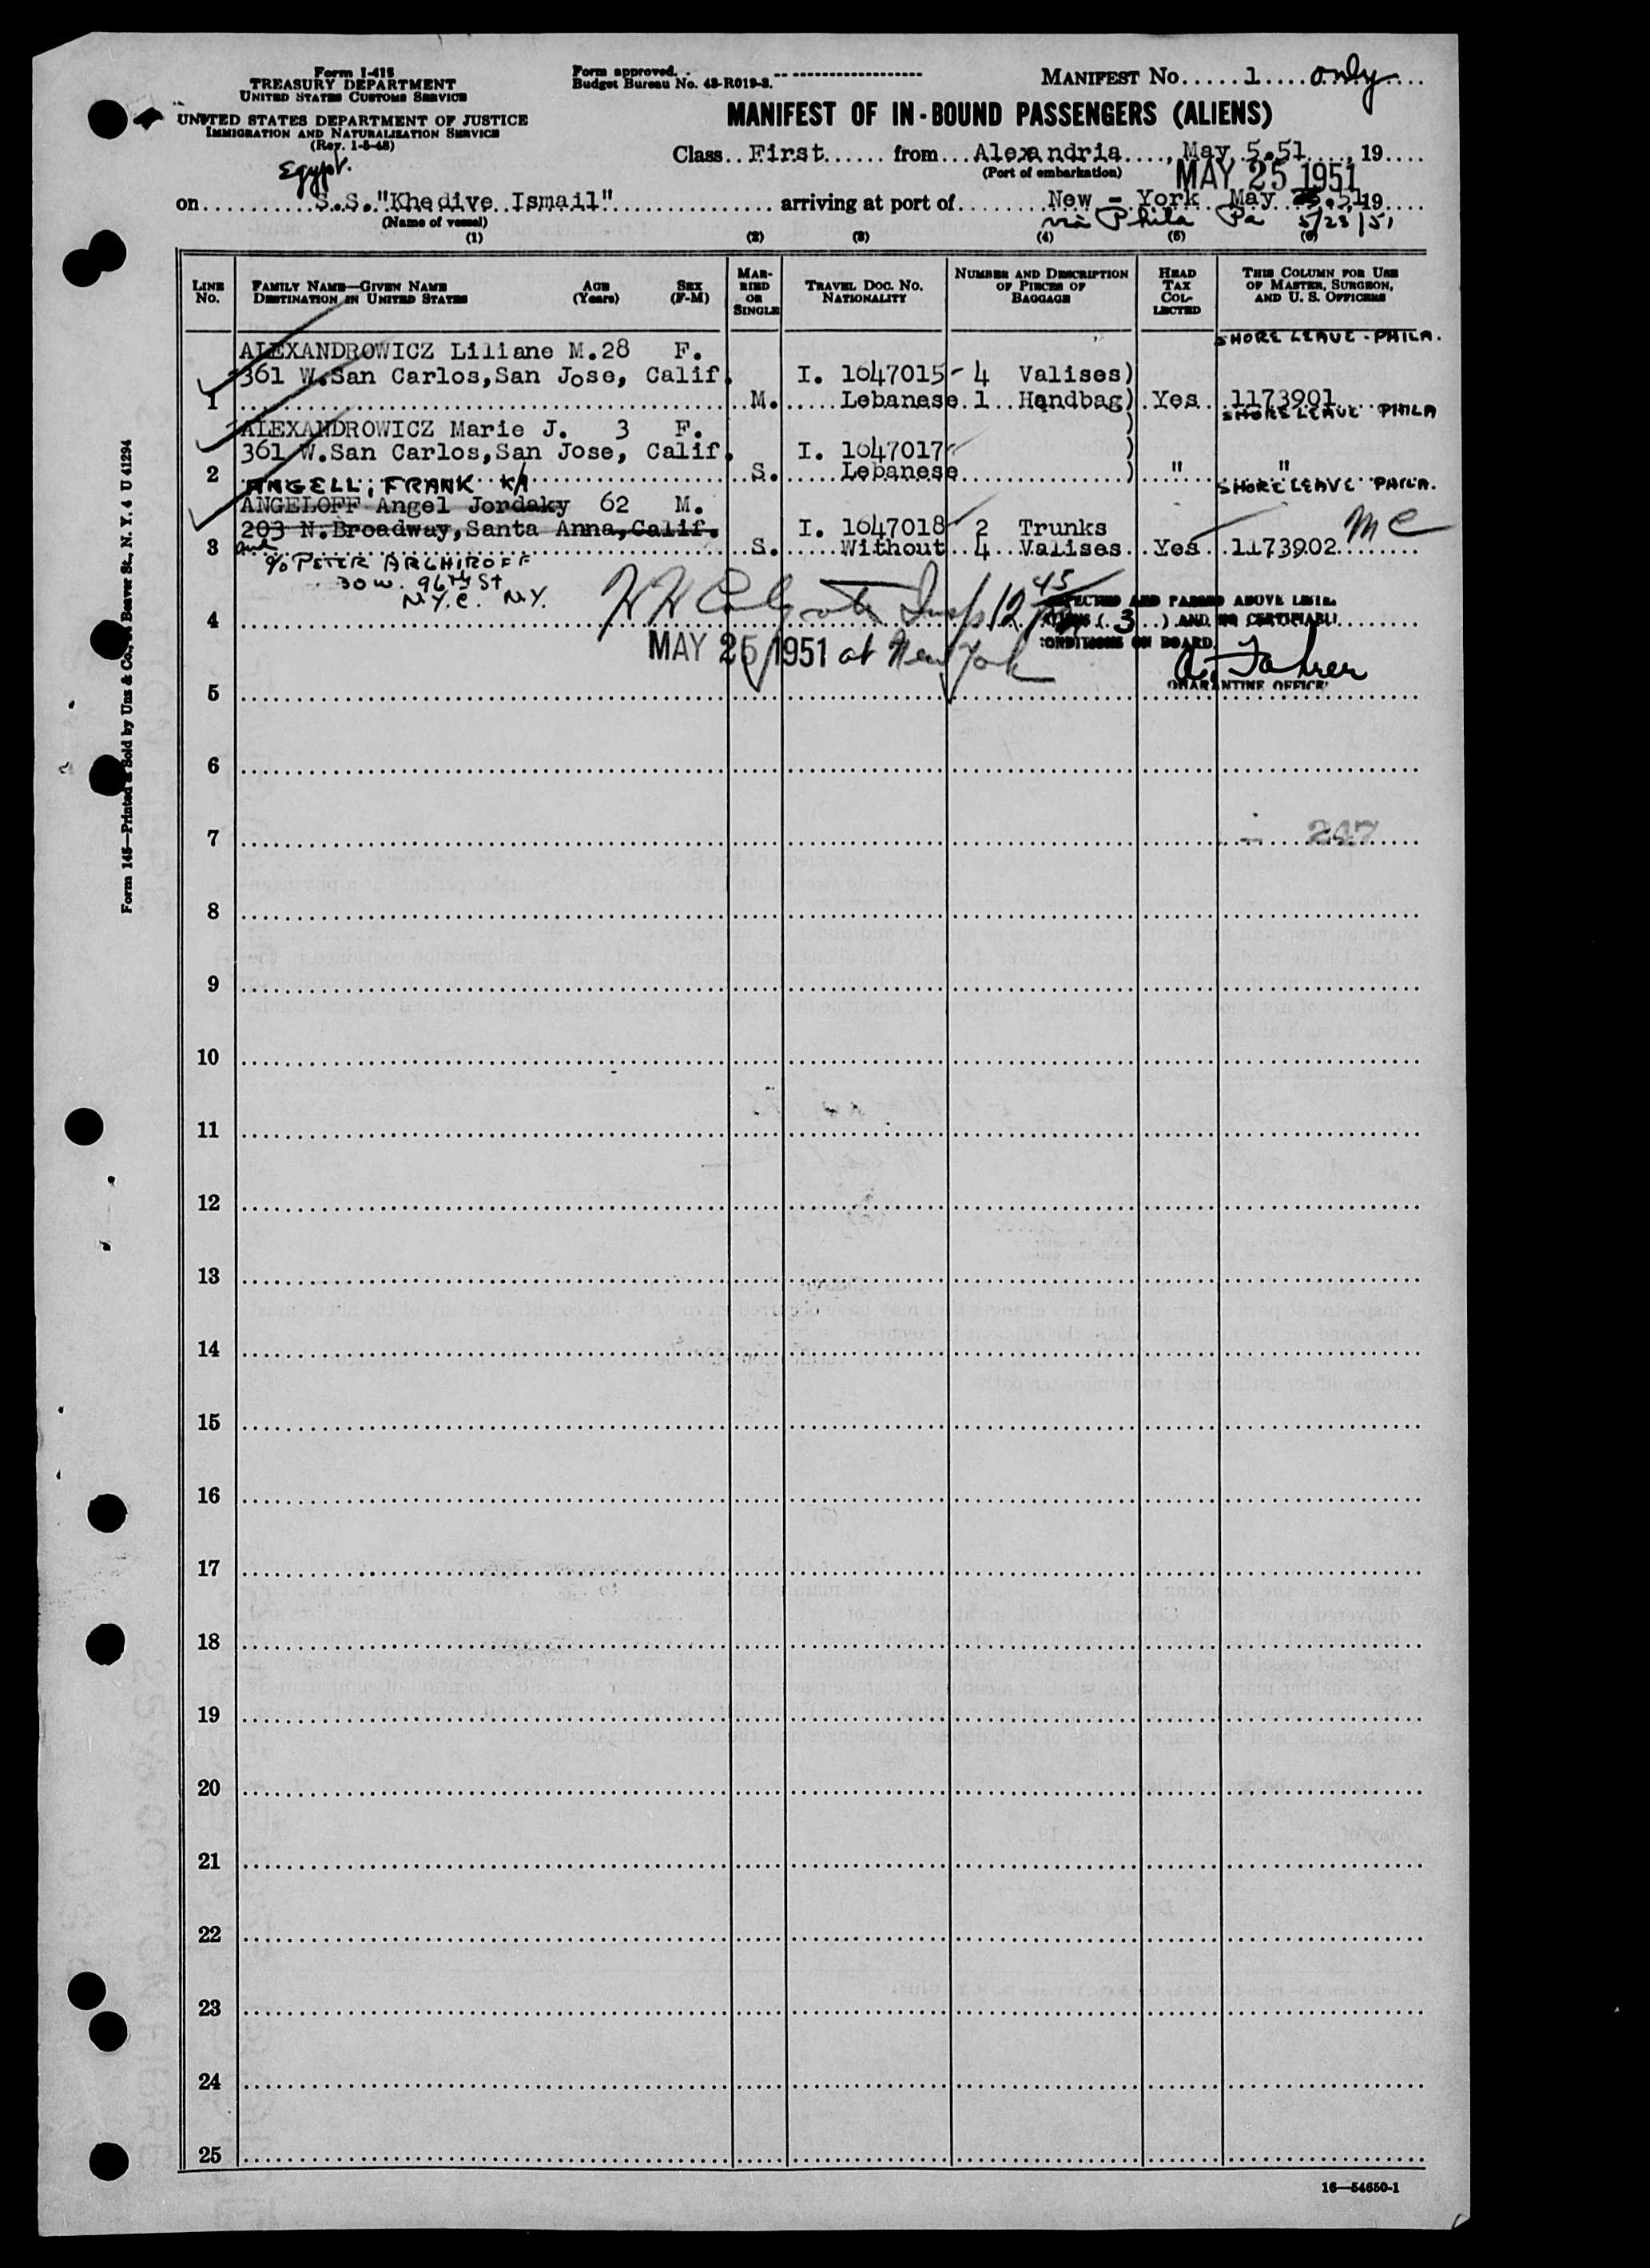 Form I-415
TREASURY DEPARTMENT
UNITED STATES CUSTOMS SERVICE
UNITED STATES DEPARTMENT OF JUSTICE
IMMIGRATION AND NATURALIZATION SERVICE
(Rev. 1-5-48)
Form approved.
Budget Bureau No. 43-R019-3.
MANIFEST NO. 1 only
MANIFEST OF IN-BOUND PASSENGERS (ALIENS)
Class First from Alexandria, May 5.51, 19
(Port of embarkation)
MAY 25 1951
Egypt.
on S.S."Khedive Ismail" arriving at port of New - York May 19
(Name of vessel)
via Phila Pa 5/23/51
(1) (2) (3) (4) (5) (6)
LINE NO.
FAMILY NAME—GIVEN NAME
DESTINATION IN UNITED STATES
AGE (Years)
SEX (F-M)
MARRIED OR SINGLE
TRAVEL DOC. NO.
NATIONALITY
NUMBER AND DESCRIPTION OF PIECES OF BAGGAGE
HEAD TAX COLLECTED
THIS COLUMN FOR USE OF MASTER, SURGEON, AND U. S. OFFICERS
SHORE LEAVE - PHILA.
ALEXANDROWICZ Liliane M. 28 F.
361 W.San Carlos,San Jose, Calif. I. 1647015 - 4 Valises)
1 M. Lebanese 1 Handbag) Yes 1173901
SHORE LEAVE PHILA
ALEXANDROWICZ Marie J. 3 F. )
361 W.San Carlos,San Jose, Calif. I. 1647017 )
2 S. Lebanese ) " "
ANGELL, FRANK K/A
SHORE LEAVE PHILA.
ANGELOFF Angel Jordaky 62 M.
203 N.Broadway,Santa Anna,Calif. I. 1647018 2 Trunks
3 S. Without 4 Valises Yes 1173902 MC
c/o PETER ARGHIROFF
30 W. 96th St
N.Y.C. N.Y.
INSPECTED AND PASSED ABOVE LISTED
ALIENS ( 3 ) AND NO CERTIFIABLE
CONDITIONS ON BOARD.
4
MAY 25 1951 at New York
QUARANTINE OFFICER
5
6
7
247
8
9
10
11
12
13
14
15
16
17
18
19
20
21
22
23
24
25
16—54650-1
Form 145—Printed & Sold by Unz & Co., Beaver St., N. Y. 4 U 41294